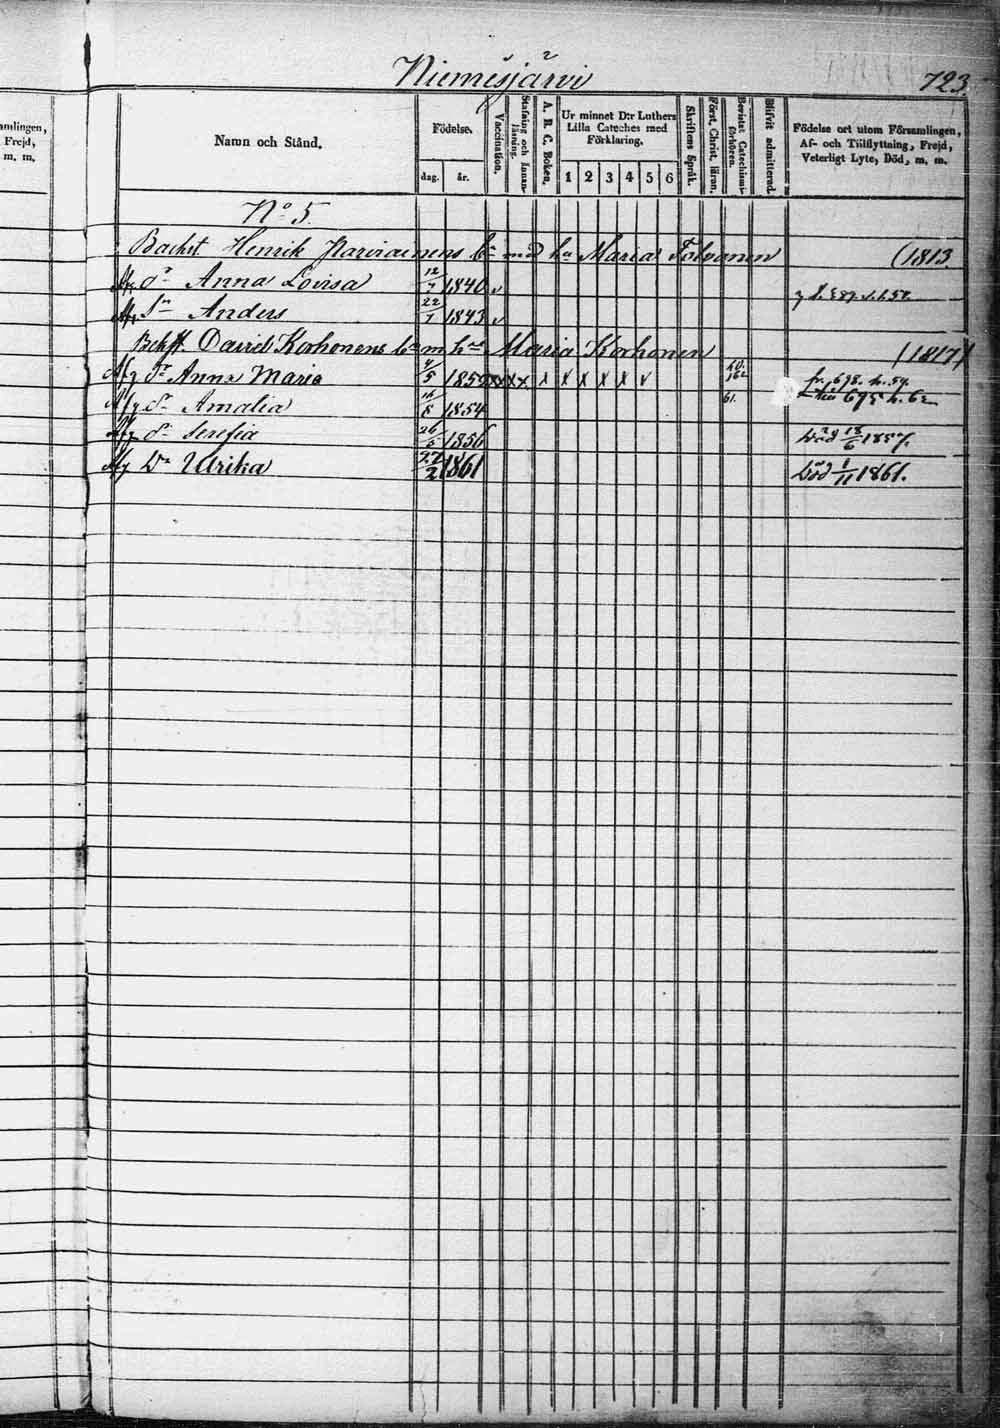 Niemisjärvi 723
amlingen,
Frejd,
m. m.
Namn och Stånd.
Födelse.
dag. år.
Vaccination.
Stafning och Innan-läsning.
A. B. C. Boken.
Ur minnet D:r Luthers
Lilla Cateches med
Förklaring.
1 2 3 4 5 6
Skriftens Språk.
Först. Christ. läran.
Bevistat Catechismi-förhören.
Blifvit admitterad.
Födelse ort utom Församlingen,
Af- och Tillflyttning, Frejd,
Veterligt Lyte, Död, m. m.
No 5
Backst. Henrik Parviainens med hu Maria Tolvanen (1813
dr Anna Lovisa 12/7 1840 v
Sn Anders 22/7 1843 v
David Korhonens m hu Maria Korhonen (1817)
dr Anna Maria 5 185 x x x x x x x x v fr. 698. h. 59.
dr Amalia 16/8 1854 61. 695 h. 62
dr Serefia 26/5 1856 Död 18/6 1857.
Dr Ulrika 27/2 1861 Död 1/11 1861.